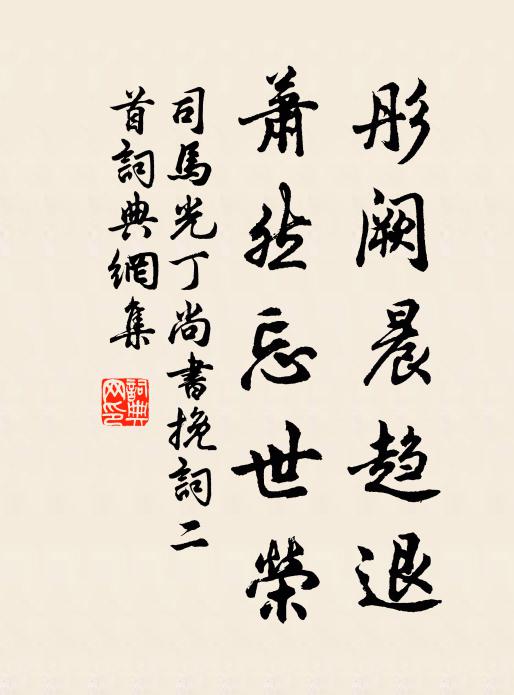 彤阙晨趋退
萧然忘世荣
司馬光丁尚書挽詞二
首詞典網集
詞典
网印